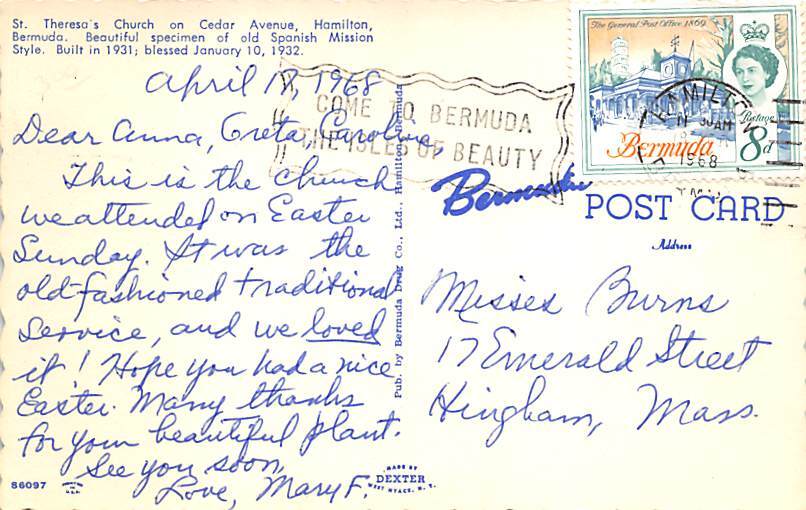 St. Theresa's Church on Cedar Avenue, Hamilton,
Bermuda. Beautiful specimen of old Spanish Mission
Style. Built in 1931; blessed January 10, 1932.
April 17, 1968
Dear Anna, Greta, Caroline,
This is the church
we attended on Easter
Sunday. It was the
old-fashioned traditional
service, and we loved
it! Hope you had a nice
Easter. Many thanks
for your beautiful plant.
See you soon,
Love, Mary F.
86097
MADE BY
DEXTER
WEST NYACK, N. Y.
Pub. by Bermuda Drug Co., Ltd., Hamilton, Bermuda
COME TO BERMUDA
THE ISLES OF BEAUTY
The General Post Office 1869
Postage
8d
Bermuda
HAMILTON
30AM
1968
Bermuda
POST CARD
Address
Misses Burns
17 Emerald Street
Hingham, Mass.